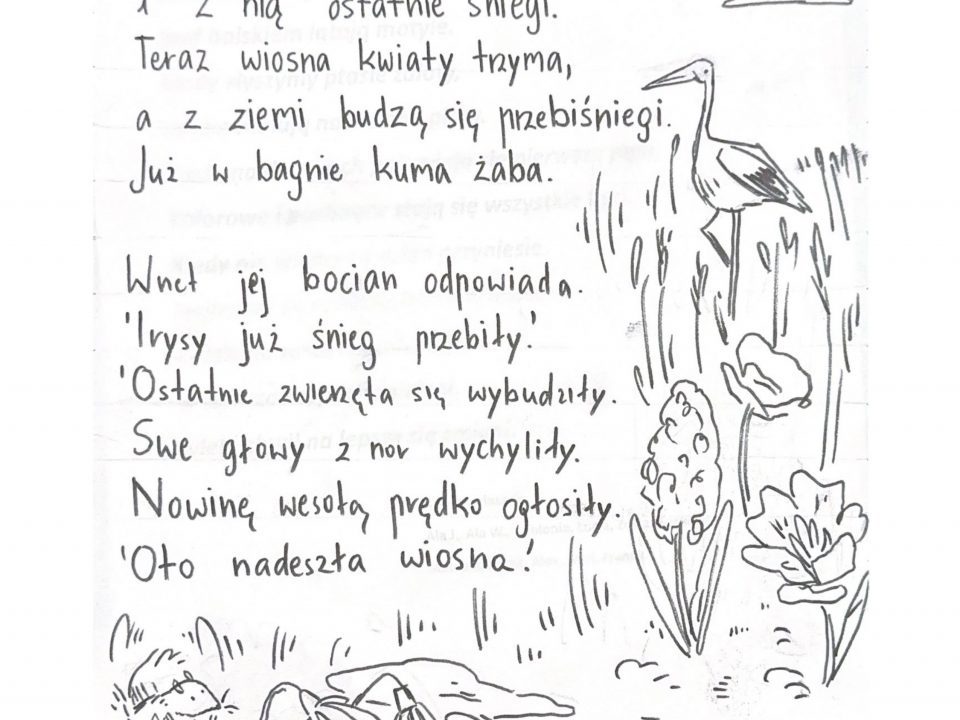 i z nią ostatnie śniegi.
Teraz wiosna kwiaty trzyma,
a z ziemi budzą się przebiśniegi.
Już w bagnie kuma żaba.
Wnet jej bocian odpowiada.
'Irysy już śnieg przebiły.'
'Ostatnie zwierzęta się wybudziły.
Swe głowy z nor wychyliły.
Nowinę wesołą prędko ogłosiły.
'Oto nadeszła wiosna.'